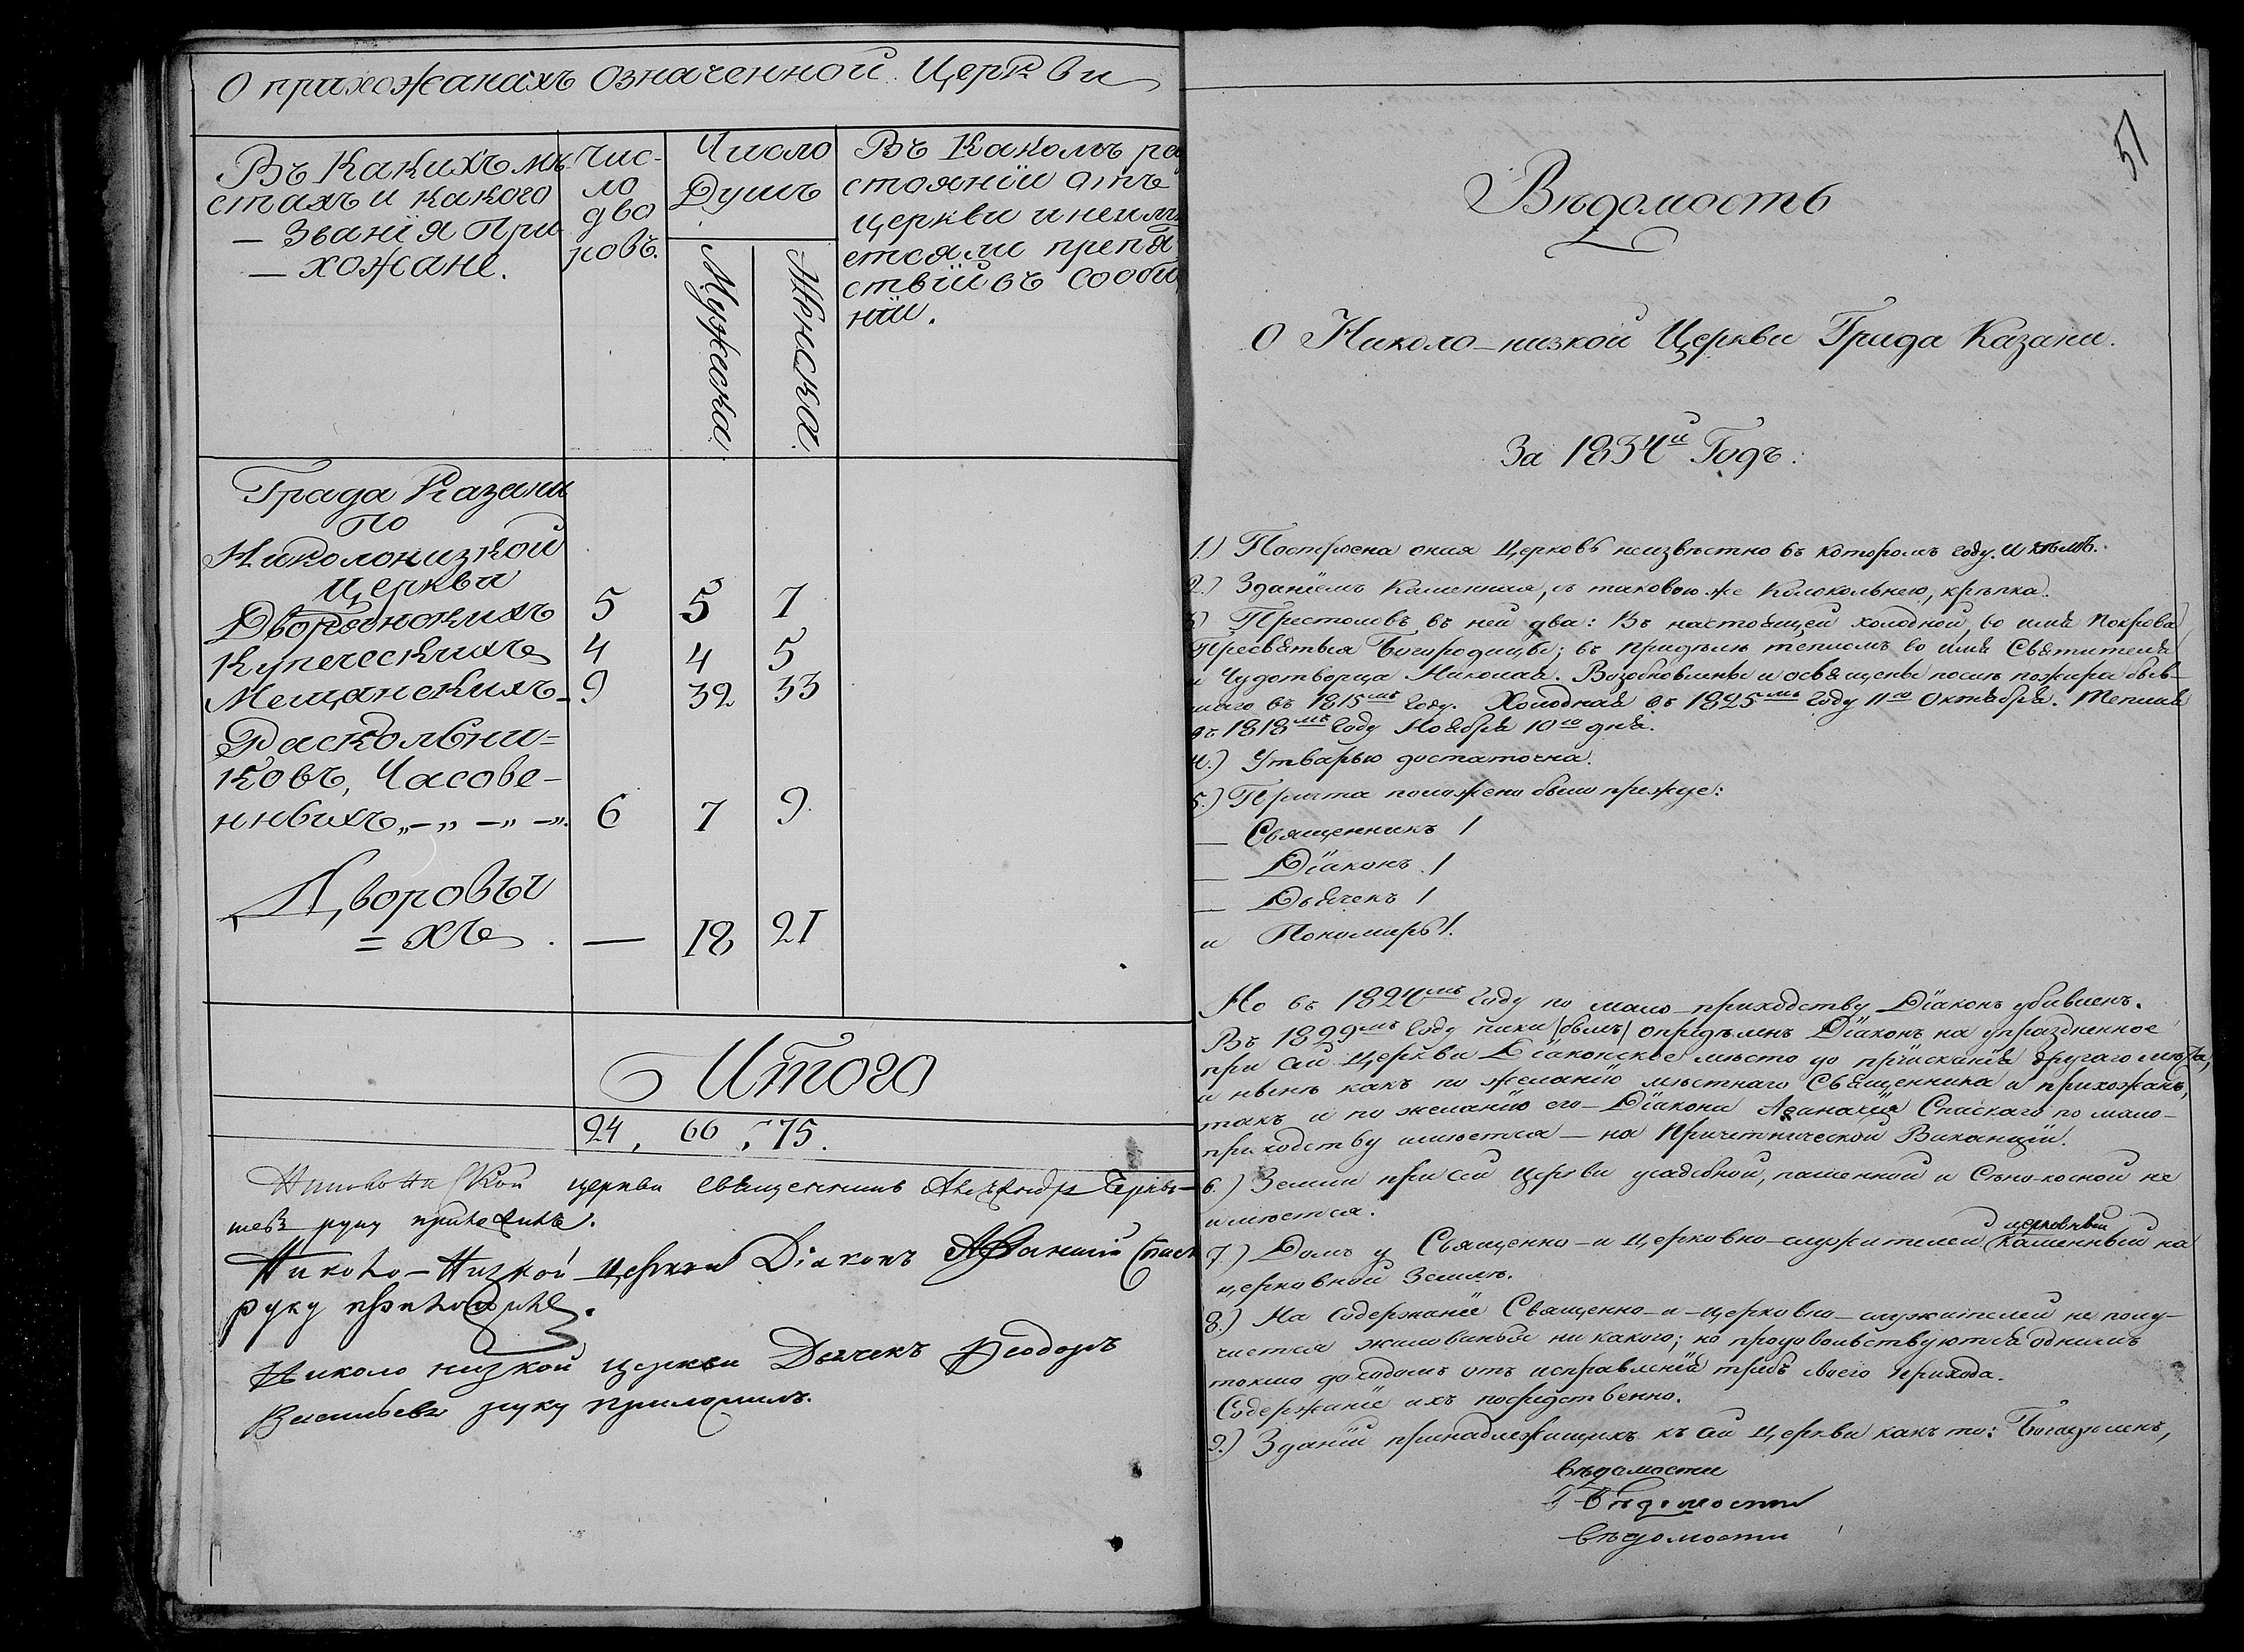 О прихожанахъ означенной Церкви
Въ Какихъ мѣ-
стахъ и какого
— Званія При
— хожане.
Чис-
ло
дво
ровъ.
Число
Душъ
Мужеска
Женска.
Въ Какомъ ра
стояніи отъ
церкви и неимѣ
ется ли препя
ствій въ сообщ
ніи.
Града Казани
по
Николонизкой
Церкви
Дворянскихъ 5 5 7
Купеческихъ 4 4 5
Мещанскихъ - 9 32 33
Раскольни=
ковъ, Часове-
нныхъ „-„ -„ -„. 6 7 9
Дворовы
= хъ . — 18 21
Итого
24, 66, 75.
церкви священникъ Александръ
руку приложилъ.
Николо-Низкой церкви Діаконъ Афанасий Спаск
руку приложилъ.
Николо низкой церкви Дьячекъ Феодоръ
Васильевъ руку приложилъ.
51
Вѣдомость
О Николо-низкой Церкви Града Казани.
За 1834й Годъ:
1.) Построена оная Церковь неизвѣстно въ которомъ году. и кѣмъ.
2.) Зданіемъ каменная, съ таковою же колокольнею, крѣпка.
3) Престоловъ въ ней два: Въ настоящей холодной, во имя Покрова
Пресвятыя Богородицы; въ придѣлѣ тепломъ во имя Святителя
и Чудотворца Николая. Возобновлены и освящены послѣ пожара быв-
шаго въ 1815мъ году. Холодная въ 1825мъ году 11го Октября. Теплая
въ 1818мъ году Ноября 10го дня.
4.) Утварью достаточна.
5.) Причта положено было прежде:
— Священникъ 1
— Діаконъ 1
— Дьячекъ 1
и Пономарь 1.
Но въ 1824мъ году по мало-приходству Діаконъ убивленъ.
Въ 1829мъ году паки /былъ/ опредѣленъ Діаконъ на упраздненное
при сей Церкви Діаконское мѣсто до пріисканія другаго мѣста,
и нынѣ какъ по желанію мѣстнаго Священника и прихожанъ,
такъ и по желанію его – Діакона Афанасія Спаскаго по мало-
приходству имѣется – на Причетнической Ваканціи.
6.) Земли при сей Церкви усадебной, пашенной и Сѣно-косной не
имѣется.
7.) Домъ у Священно-и церковно-служителей церковный каменный на
церковной Землѣ.
8.) На содержаніе Священно-и-церковно-служителей не полу-
чается жалованья ни какого; но продовольствуются однимъ
токмо доходомъ отъ исправленія требъ своего прихода.
Содержаніе ихъ посредственно.
9.) Зданій принадлежащихъ къ сей Церкви какъ то: Богадѣленъ,
вѣдомости
Вѣдомости
вѣдомости